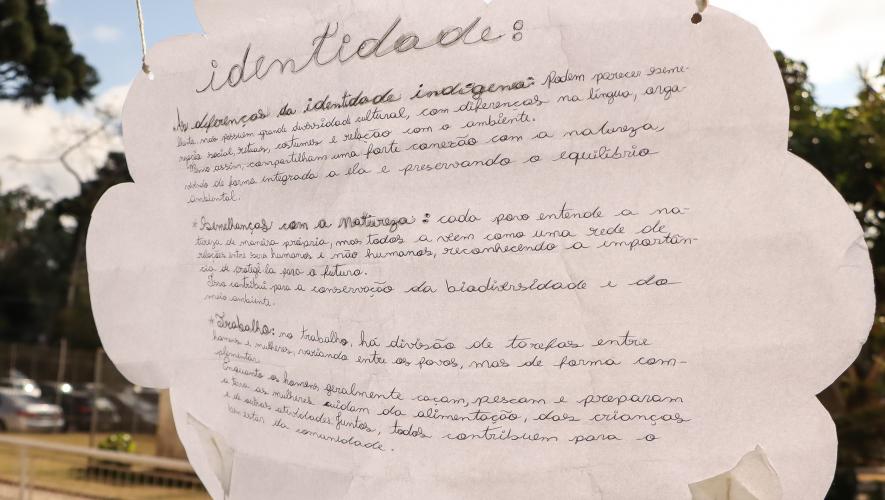 identidade:
As diferenças da identidade indígena: Podem parecer seme-
lhante mas possuem grande diversidade cultural, com diferenças na língua, orga-
nização social, rituais, costumes e relação com o ambiente.
Mesmo assim, compartilham uma forte conexão com a natureza,
vivendo de forma integrada a ela e preservando o equilíbrio
ambiental.
*Semelhanças com a Natureza: cada povo entende a na-
tureza de maneira própria, mas todos a vêem como uma rede de
relações entre seres humanos e não humanos, reconhecendo a importân-
cia de protegê-la para o futuro.
Isso contribui para a conservação da biodiversidade e do
meio ambiente.
*Trabalho: no trabalho, há divisão de tarefas entre
homens e mulheres, variando entre os povos, mas de forma com-
plementar.
Enquanto os homens geralmente caçam, pescam e preparam
a terra as mulheres cuidam da alimentação, das crianças
e de outras atividades. Juntos, todos contribuem para o
bem estar da comunidade.